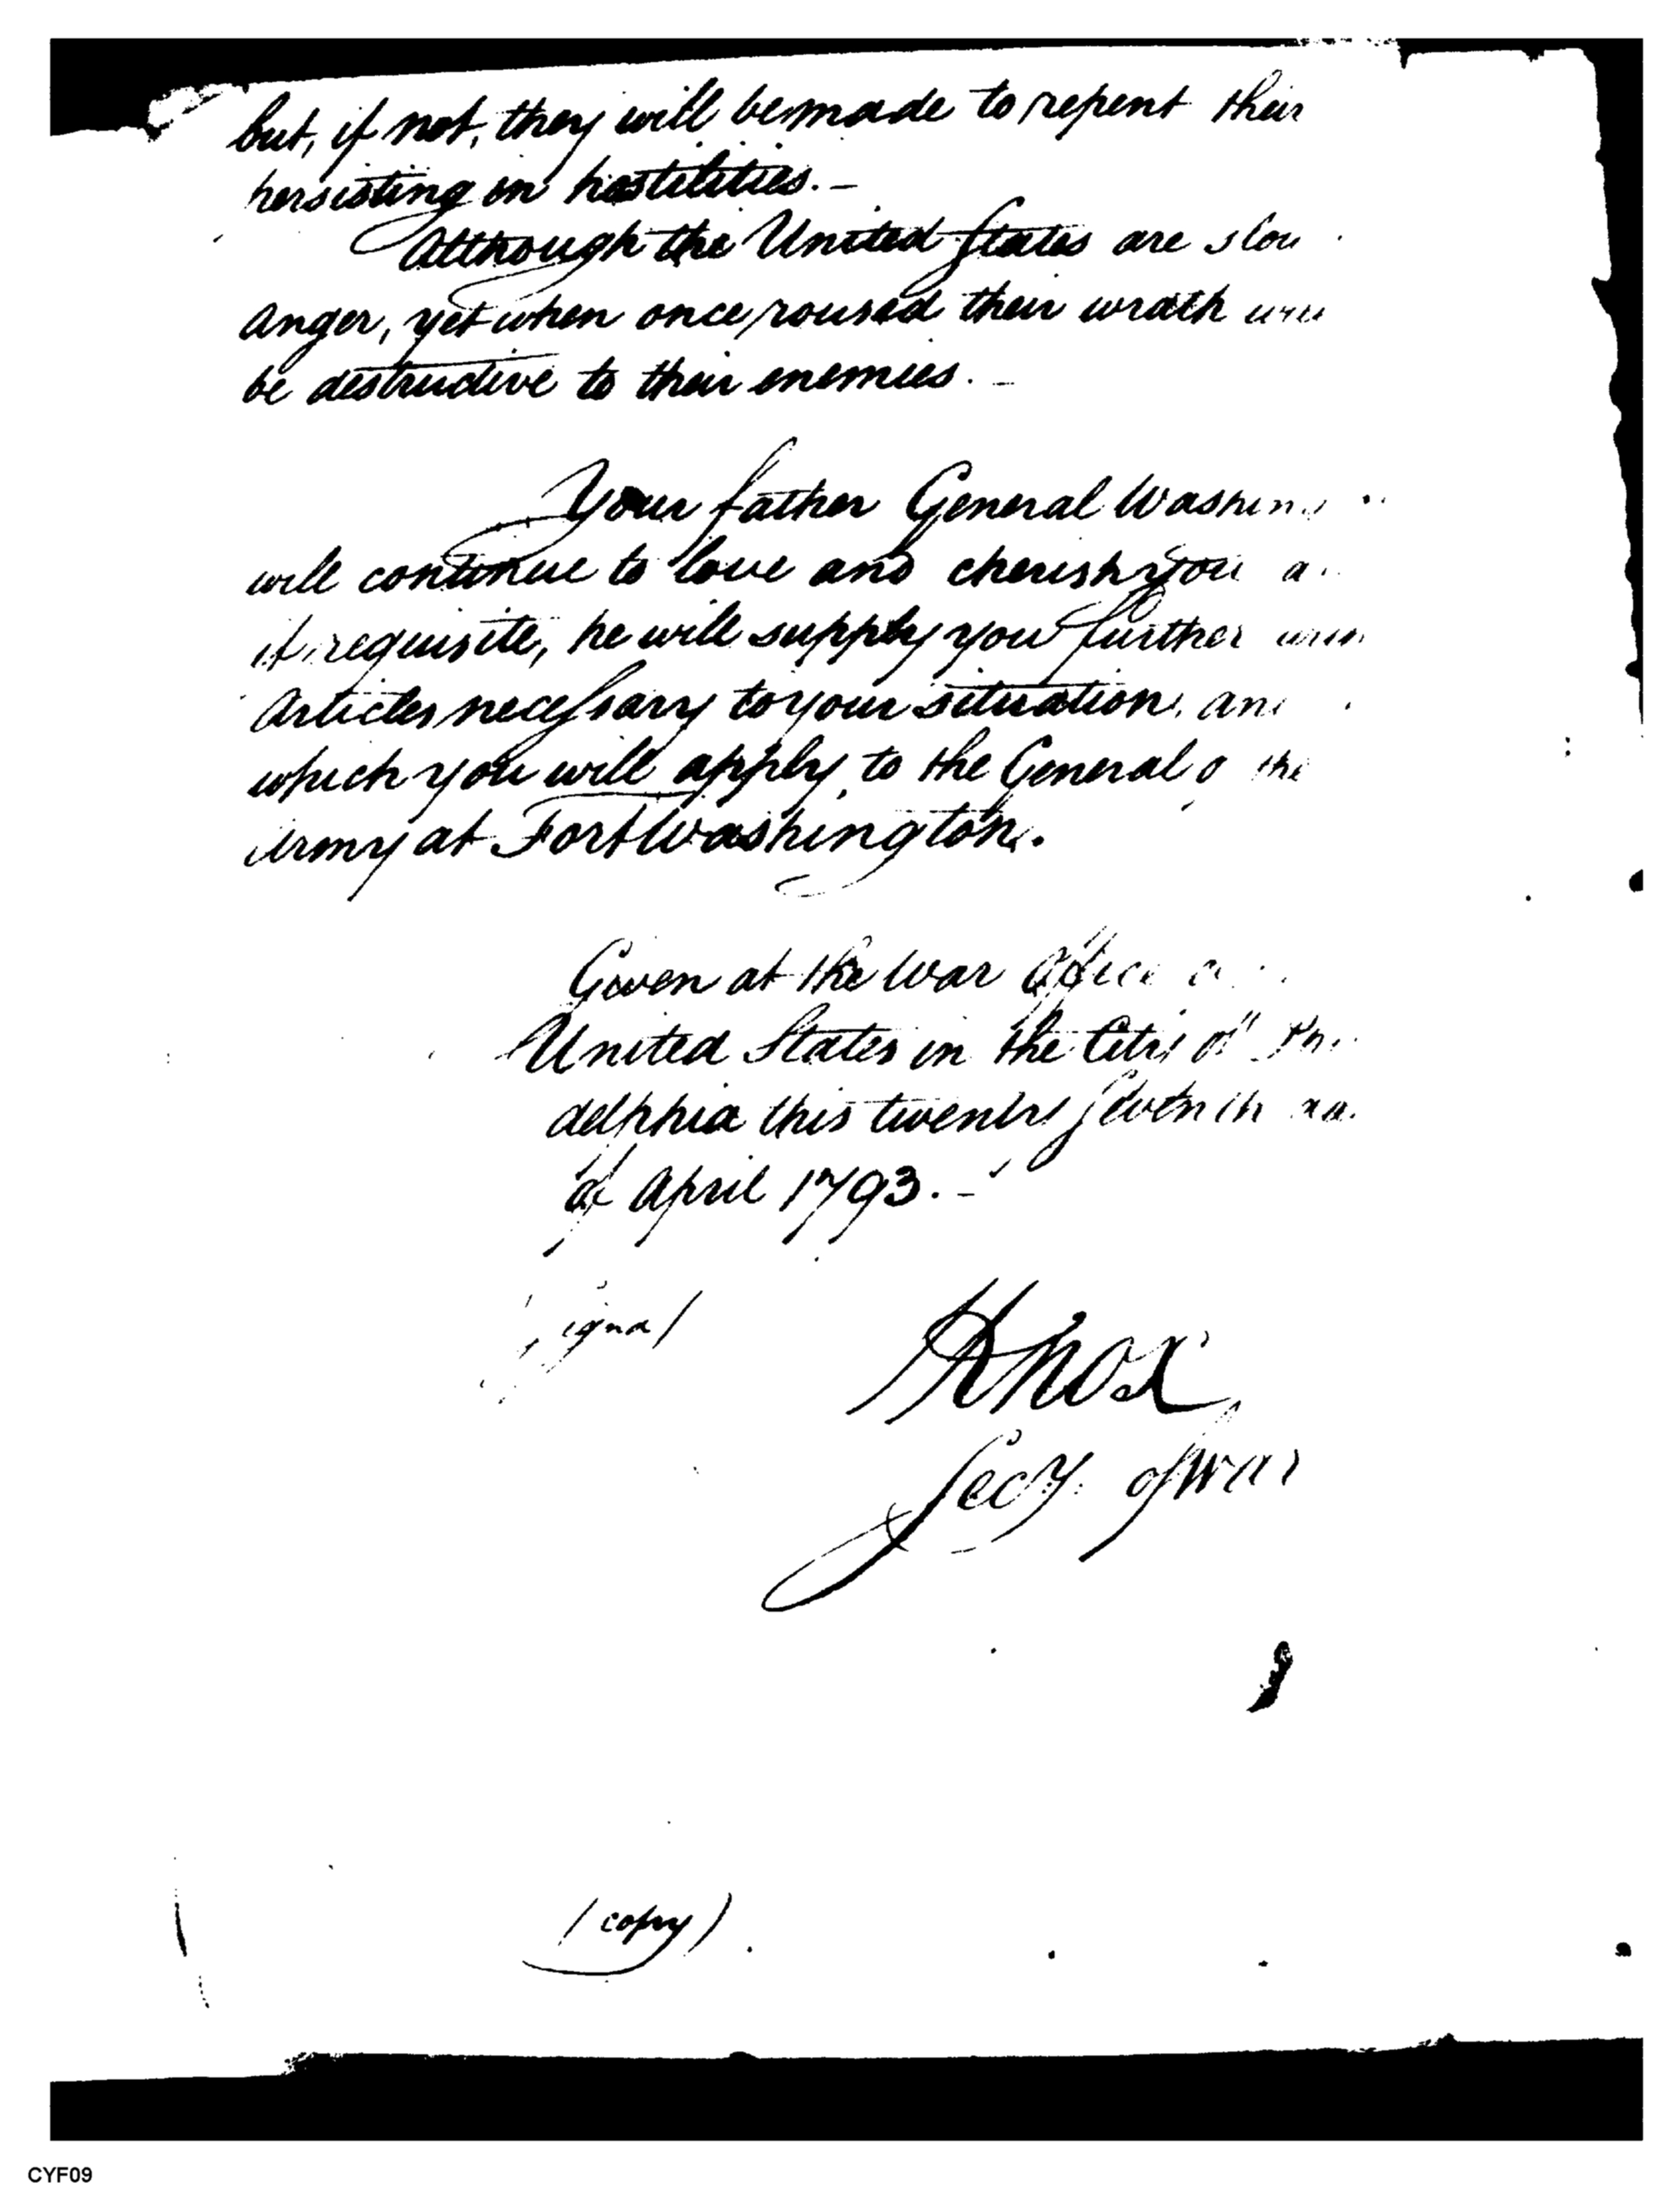 but, if not, they will be made to repent their
persisting in hostilities. –
Although the United States are slow
anger, yet when once roused their wrath will
be destructive to their enemies. –
Your father General Washin
will continue to love and cherish you a
if requisite, he will supply you further with
Articles necessary to your situation, an
which you will apply, to the General o the
Army at Fort Washington.
Given at the War Office
United States in the City of Ph
delphia this twenty seventh da
of April 1793. –
H Knox
Secy. of War
(copy)
CYF09